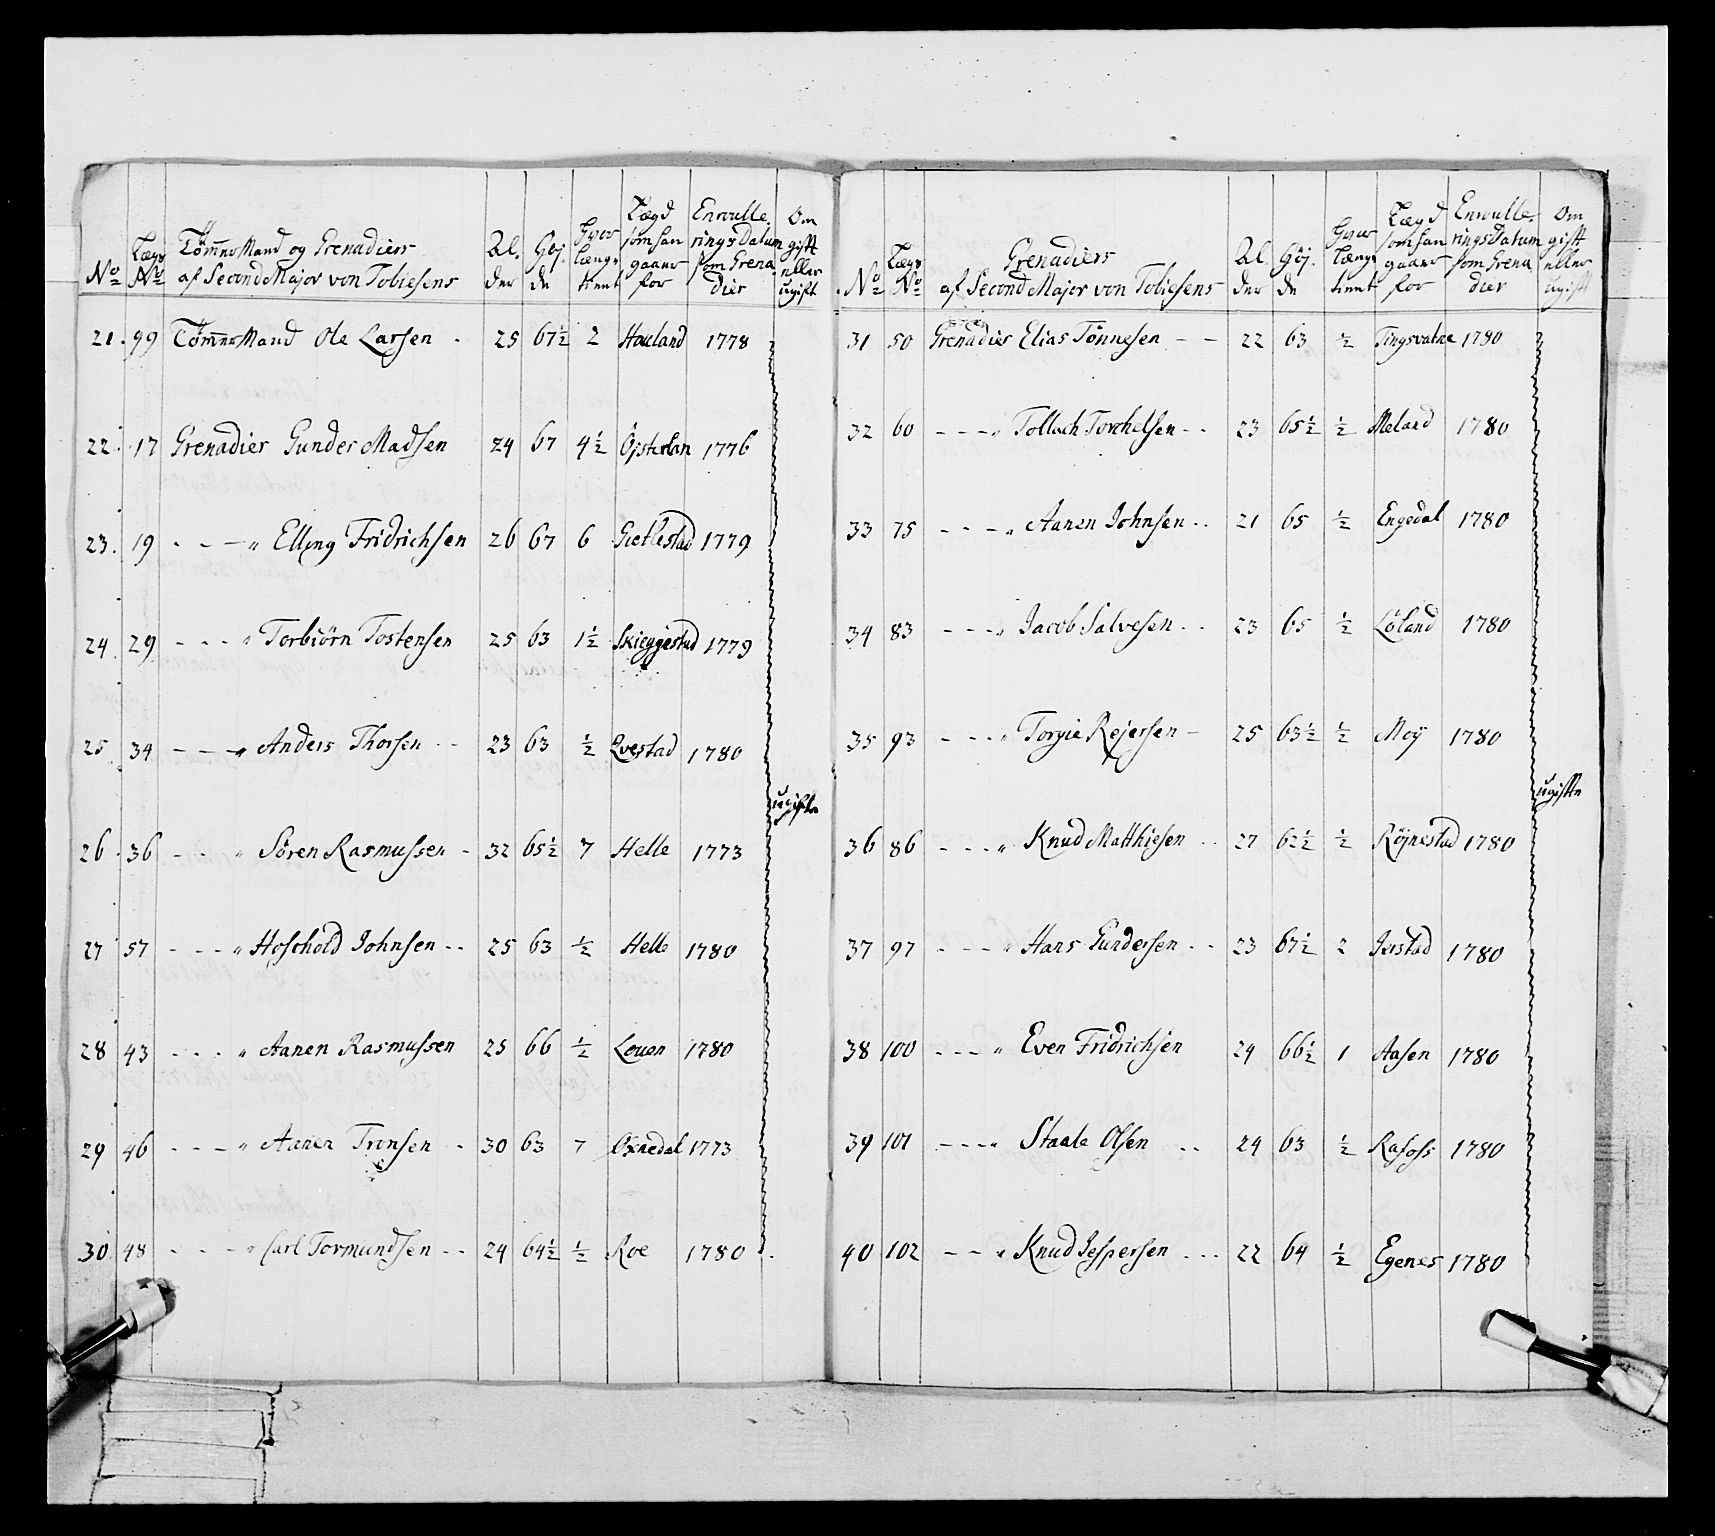 No Lægs No Tömmer Mand og Grenadiers af Second Major von Tobiesens Al der Höj de hvor længe tient Lægd som han gaaer for Enroulle rings Datum som Grena dier Om gift eller ugift
21. 99 Tömmer Mand Ole Larsen - 25 67½ 2 Haeland 1778
22. 17 Grenadier Gunder Madsen 24 67 4½ Öjsteban 1776
23. 19 - - - " Elling Fridrichsen 26 67 6 Gietlestad 1779
24. 29 - - - " Torbiörn Tostensen 25 63 1½ Skieggestad 1779
25 34 - - - " Anders Thorsen - - 23 63 ½ Qvestad 1780
ugifte
26. 36 - - " Sören Rasmussen - 32 65½ 7 Helle 1773
27 57 - - - " Hoschold Johnsen - - 25 63 ½ Helle 1780
28 43 - - - " Aanen Rasmussen 25 66 ½ Louen 1780
29 46 - - - " Aanen Tronsen - 30 63 7 Oxnedal 1773
30 48 - - - " Carl Tormundsen - - 24 64½ ½ Roe 1780
No Lægs No Grenadiers af Second Major von Tobiesens Al der Höj de hvor længe tient Lægd som han gaaer for Enroulle rings Datum som Grena dier Om gift eller ugift
31 50 Grenadier Elias Tönnesen - - 22 63 ½ Tingsvatne 1780
32 60 - - - " Tollach Torchelsen - - 23 65½ ½ Meland 1780
33 75 - - - " Aanen Johnsen - - 21 65 ½ Engedal 1780
34 83 - - - " Jacob Salvesen - - 23 65 ½ Löland 1780
35 93 - - - " Torgie Rejersen - 25 63½ ½ Moÿ 1780
ugiffte
36 86 - - - " Knud Matthiesen - - 27 62½ ½ Röjnestad 1780
37 97 - - - " Hans Gundersen - - 23 67½ 2 Jerstad 1780
38 100 - - - " Even Fridrichsen 24 66½ 1 Aasen 1780
39 101 - - - " Staale Olsen - - 24 63 ½ Rafoss 1780
40 102 - - " Knud Jespersen - - - 22 64 ½ Egenes 1780